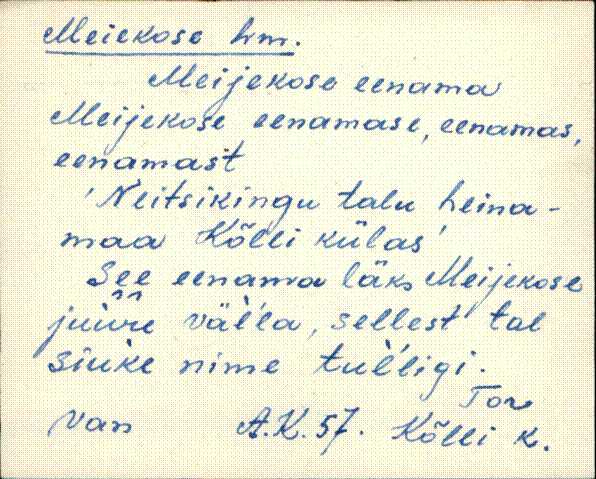 Meiekose hm.
Meijekose eenama
Meijekose eenamase, eenamas,
eenamast
'Neitsikingu talu heina-
maa Kõlli külas'
See eenama läks Meijekose
juuře väl'la, sellest tal
siuke nime tul'ligi.
Tor
Van A.K. 57. Kõlli k.